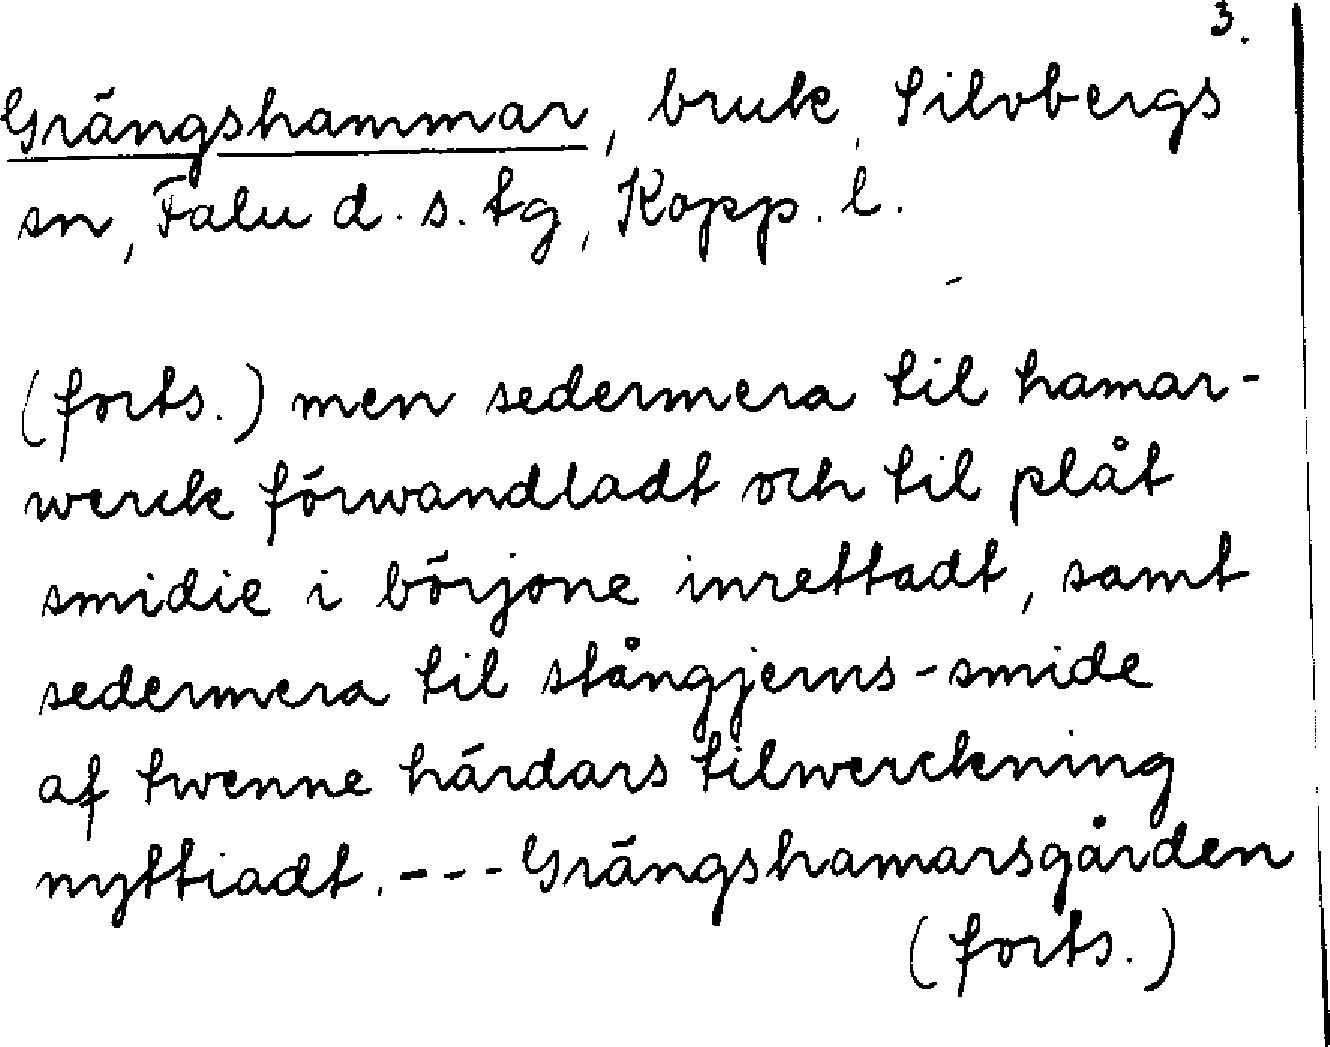 3.
Grängshammar, bruk, Silvbergs
sn, Falu d. s. tg, Kopp. l.
(forts.) men sedermera til hamar-
werck förwandladt och til plåt
smidie i börjone inrettadt, samt
sedermera til stångjerns-smide
af twenne härdars tilwerckning
nyttiadt. --- Grängshamarsgården
(forts.)